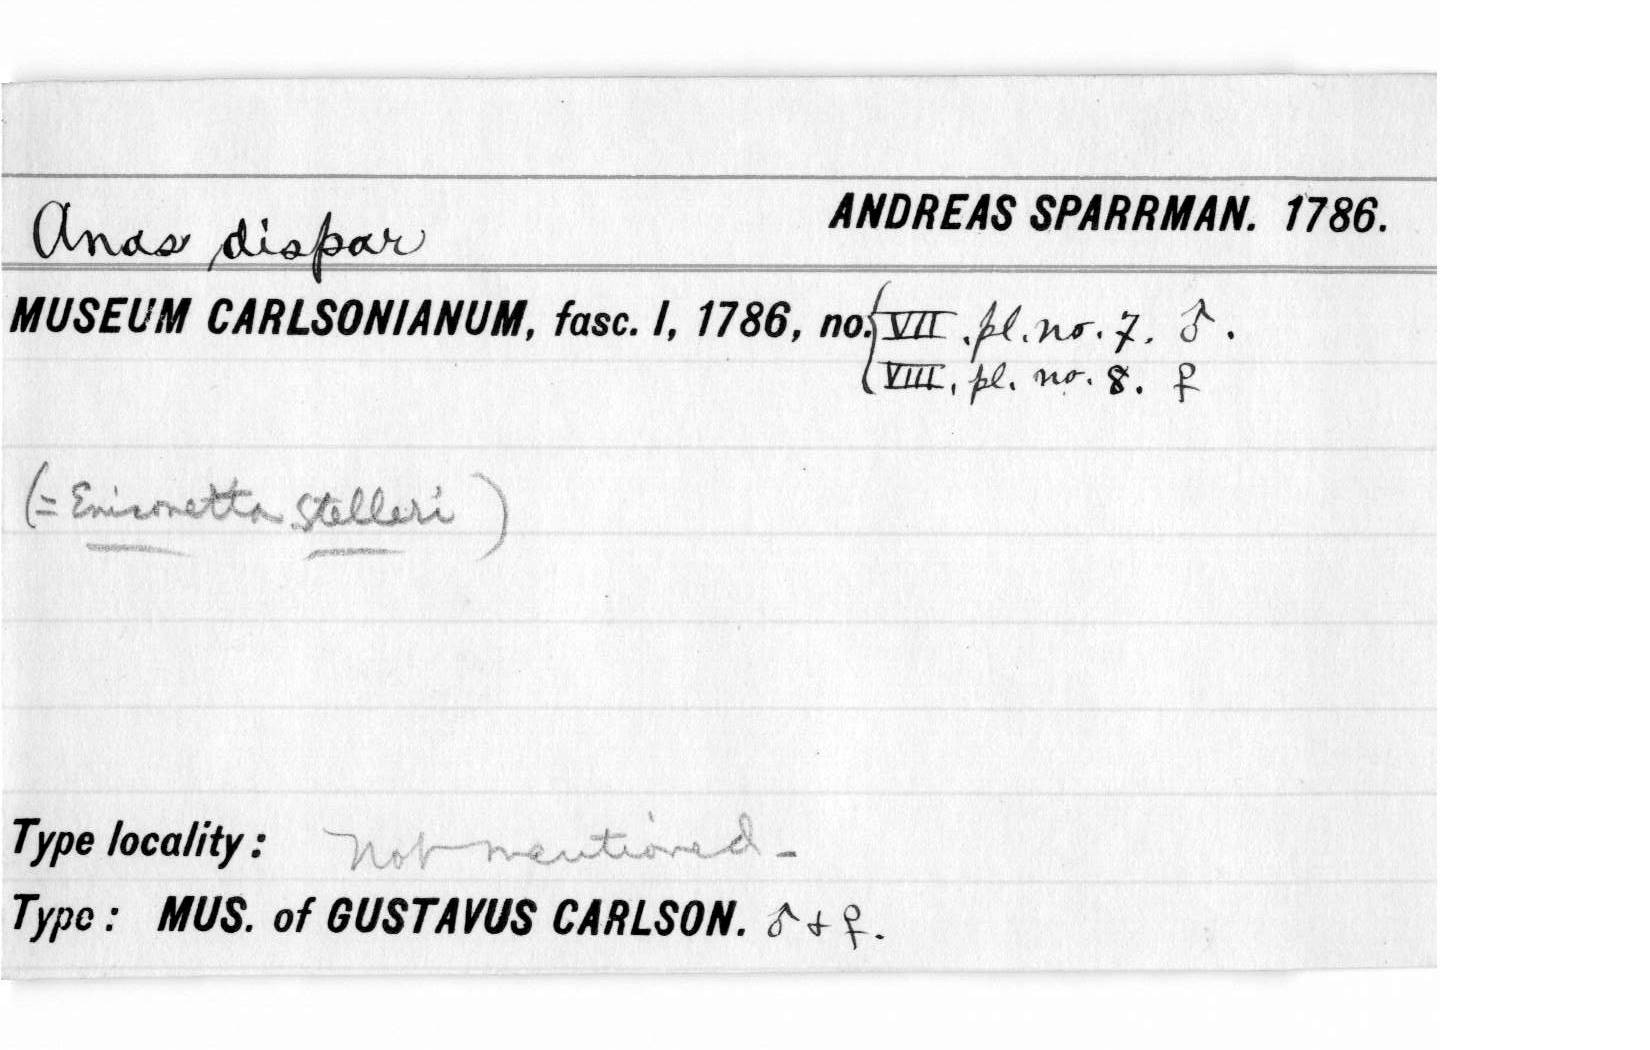 Anas dispar ANDREAS SPARRMAN. 1786.
MUSEUM CARLSONIANUM, fasc. I, 1786, no. VII. pl. no. 7. ♂.
VIII. pl. no. 8. ♀
(= Eniconetta Stelleri)
Type locality: Not mentioned -
Type: MUS. of GUSTAVUS CARLSON. ♂ + ♀.